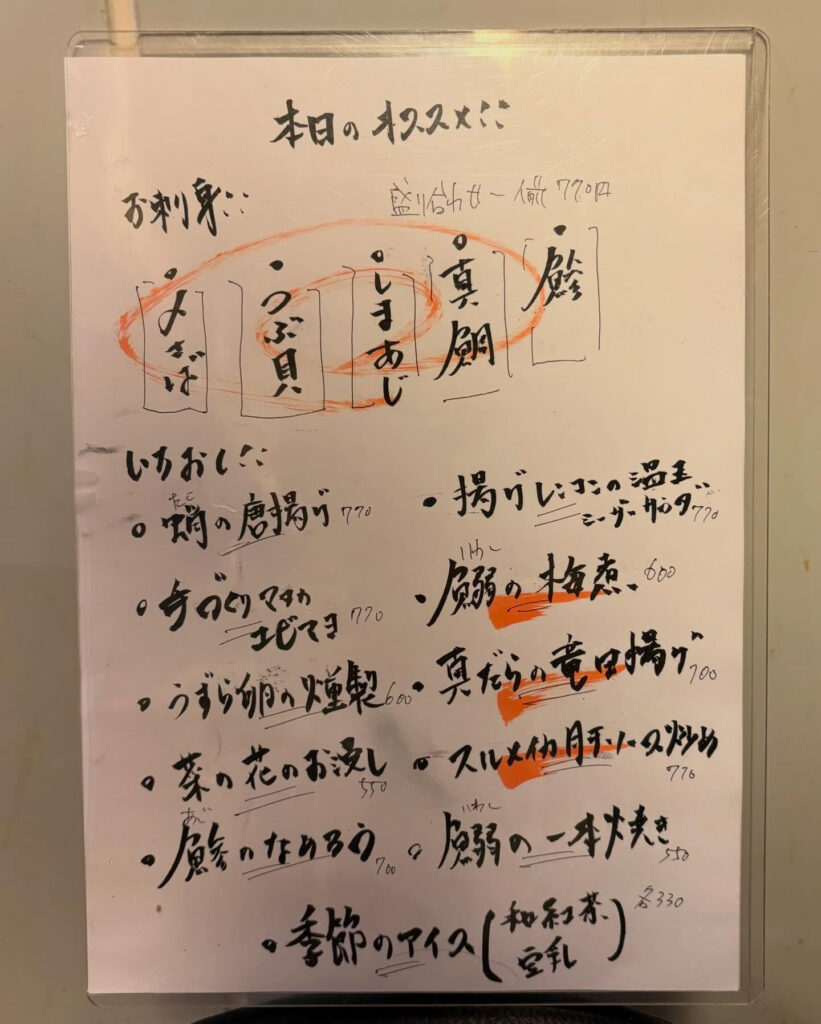 本日のオススメ!!
お刺身!!
盛り合わせ一人前 770円
・鯵
・真鯛
・しまあじ
・つぶ貝
・〆さば
いちおし!!
たこ
・蛸の唐揚げ 770
・手づくりマヨの
エビマヨ 770
・うずら卵の燻製 600
・菜の花のお浸し 550
あじ
・鯵のなめろう 700
・揚げレンコンの温玉
シーザーサラダ 770
いわし
・鰯の梅煮 600
・真だらの竜田揚げ 700
・スルメイカ肝ソース炒め
770
いわし
・鰯の一本焼き 550
・季節のアイス(和紅茶、豆乳) 各330